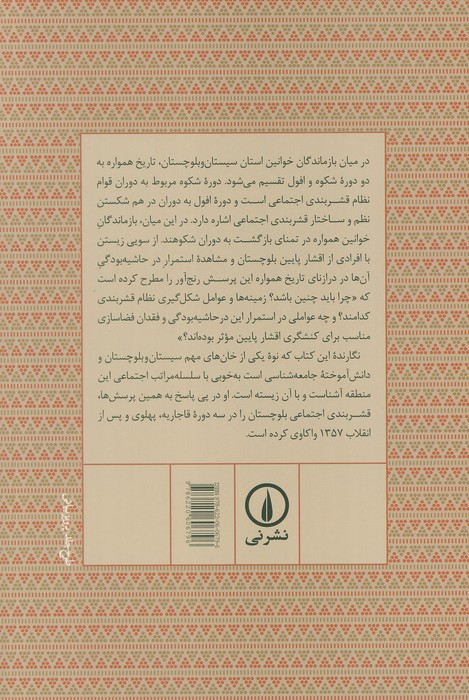 در میان بازماندگان خوانین استان سیستان‌وبلوچستان، تاریخ همواره به
دو دورهٔ شکوه و افول تقسیم می‌شود. دورهٔ شکوه مربوط به دوران قوام
نظام قشربندی اجتماعی است و دورهٔ افول به دوران در هم شکستن
نظم و ساختار قشربندی اجتماعی اشاره دارد. در این میان، بازماندگانِ
خوانین همواره در تمنای بازگشت به دوران شکوهند. از سویی زیستن
با افرادی از اقشار پایین بلوچستان و مشاهدهٔ استمرار در حاشیه‌بودگیِ
آن‌ها در درازنای تاریخ همواره این پرسش رنج‌آور را مطرح کرده است
که «چرا باید چنین باشد؟ زمینه‌ها و عوامل شکل‌گیری نظام قشربندی
کدامند؟ و چه عواملی در استمرار این درحاشیه‌بودگی و فقدان فضاسازی
مناسب برای کنشگری اقشار پایین مؤثر بوده‌اند؟»
نگارندهٔ این کتاب که نوهٔ یکی از خان‌های مهم سیستان‌وبلوچستان و
دانش‌آموختهٔ جامعه‌شناسی است به‌خوبی با سلسله‌مراتب اجتماعی این
منطقه آشناست و با آن زیسته است. او در پی پاسخ به همین پرسش‌ها،
قشربندی اجتماعی بلوچستان را در سه دورهٔ قاجاریه، پهلوی و پس از
انقلاب ۱۳۵۷ واکاوی کرده است.
نشر نی